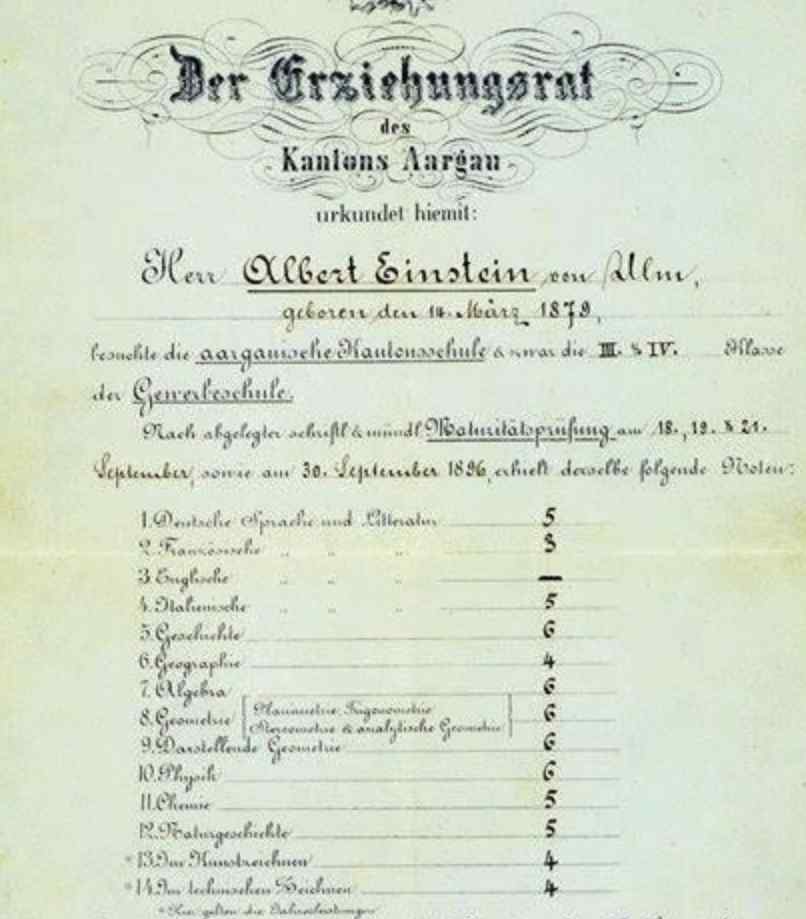 Der Erziehungsrat
des
Kantons Aargau
urkundet hiemit:
Herr Albert Einstein von Ulm,
geboren den 14. März 1879,
besuchte die aargauische Kantonsschule & zwar die III. & IV. Klasse
der Gewerbeschule.
Nach abgelegter schriftl. & mündl. Maturitätsprüfung am 18., 19. & 21.
September, sowie am 30. September 1896, erhielt derselbe folgende Noten:
1. Deutsche Sprache und Litteratur 5
2. Französische " " " 3
3. Englische " " " —
4. Italienische " " " 5
5. Geschichte 6
6. Geographie 4
7. Algebra 6
8. Geometrie [Planimetrie, Trigonometrie 6
Stereometrie & analytische Geometrie]
9. Darstellende Geometrie 6
10. Physik 6
11. Chemie 5
12. Naturgeschichte 5
* 13. Im Kunstzeichnen 4
* 14. Im technischen Zeichnen 4
* Hier gelten die Jahresleistungen.